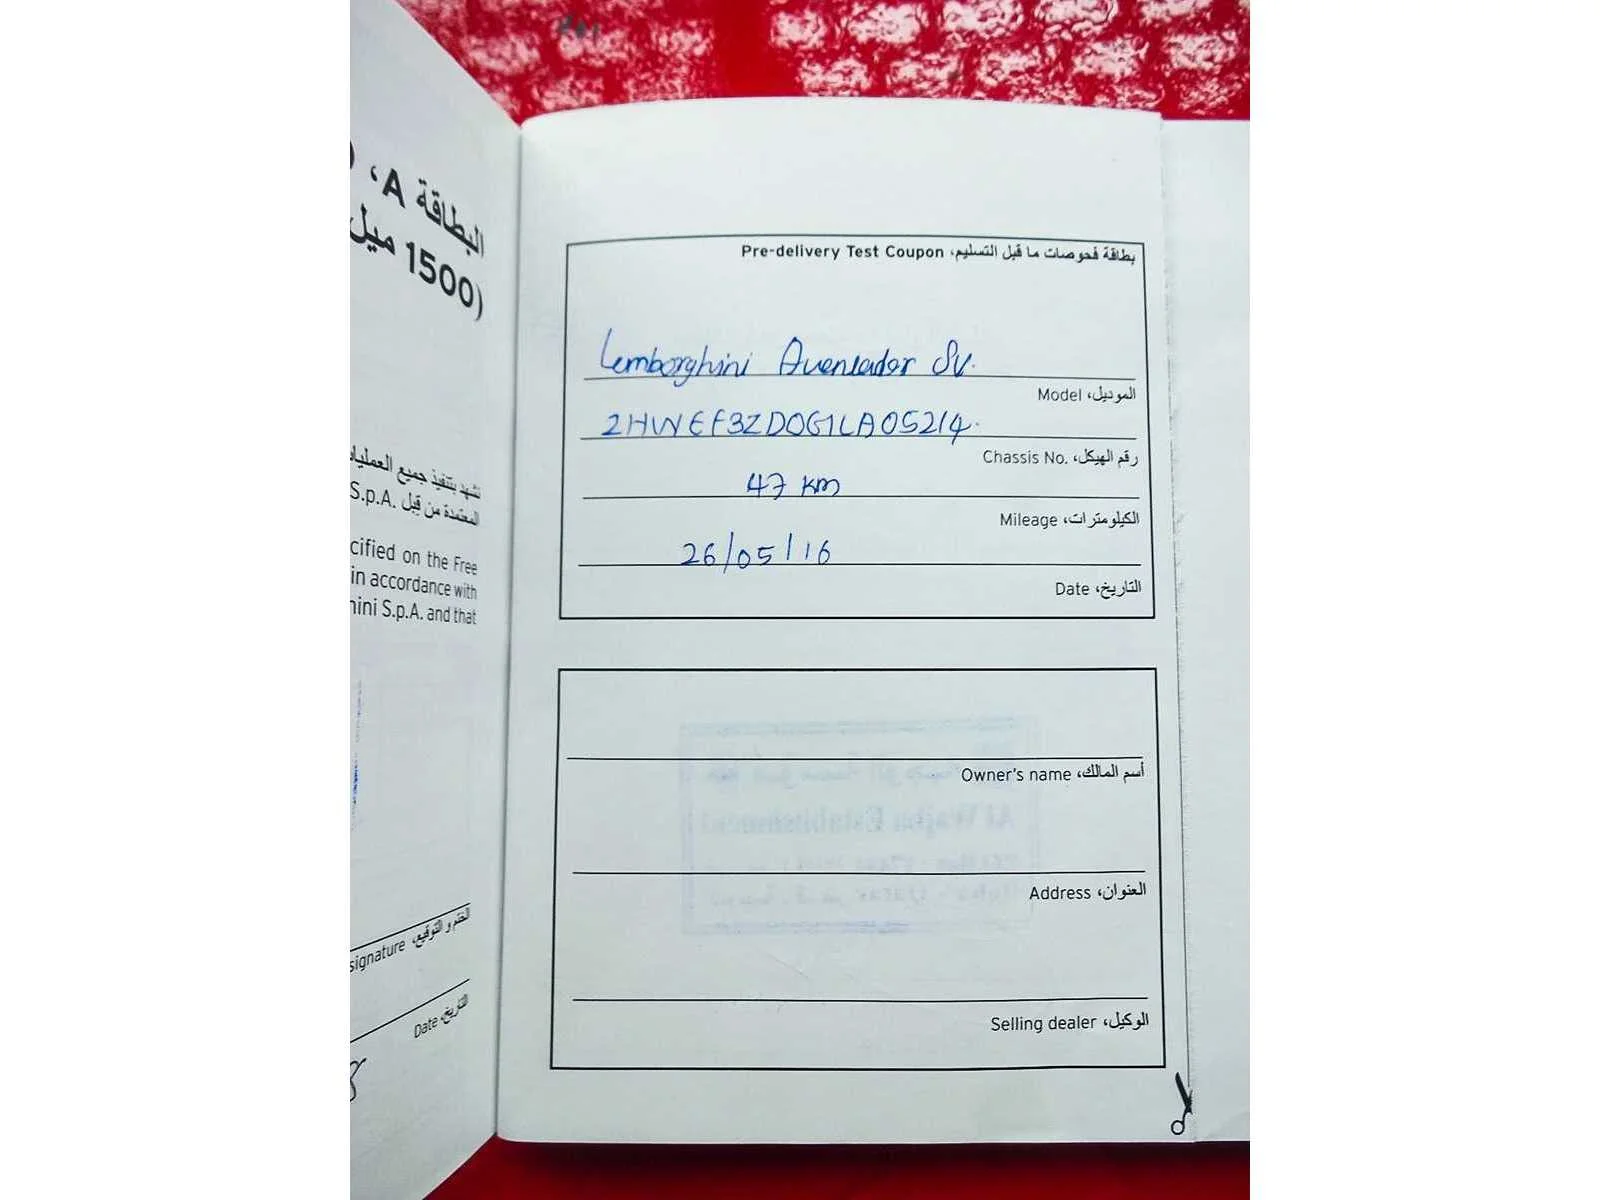 البطاقة A،
1500 ميل)
نشهد بتنفيذ جميع العمليات
المعتمدة من قبل S.p.A.
cified on the Free
in accordance with
hini S.p.A. and that
الختم و التوقيع، signature
التاريخ، Date
بطاقة فحوصات ما قبل التسليم، Pre-delivery Test Coupon
Lemborghini Aventador SV.
الموديل، Model
ZHWEF3ZD0G1LA05214.
رقم الهيكل، Chassis No.
47 km
الكيلومترات، Mileage
26/05/16
التاريخ، Date
أسم المالك، Owner's name
Al Wajba Establishment
العنوان، Address
الوكيل، Selling dealer